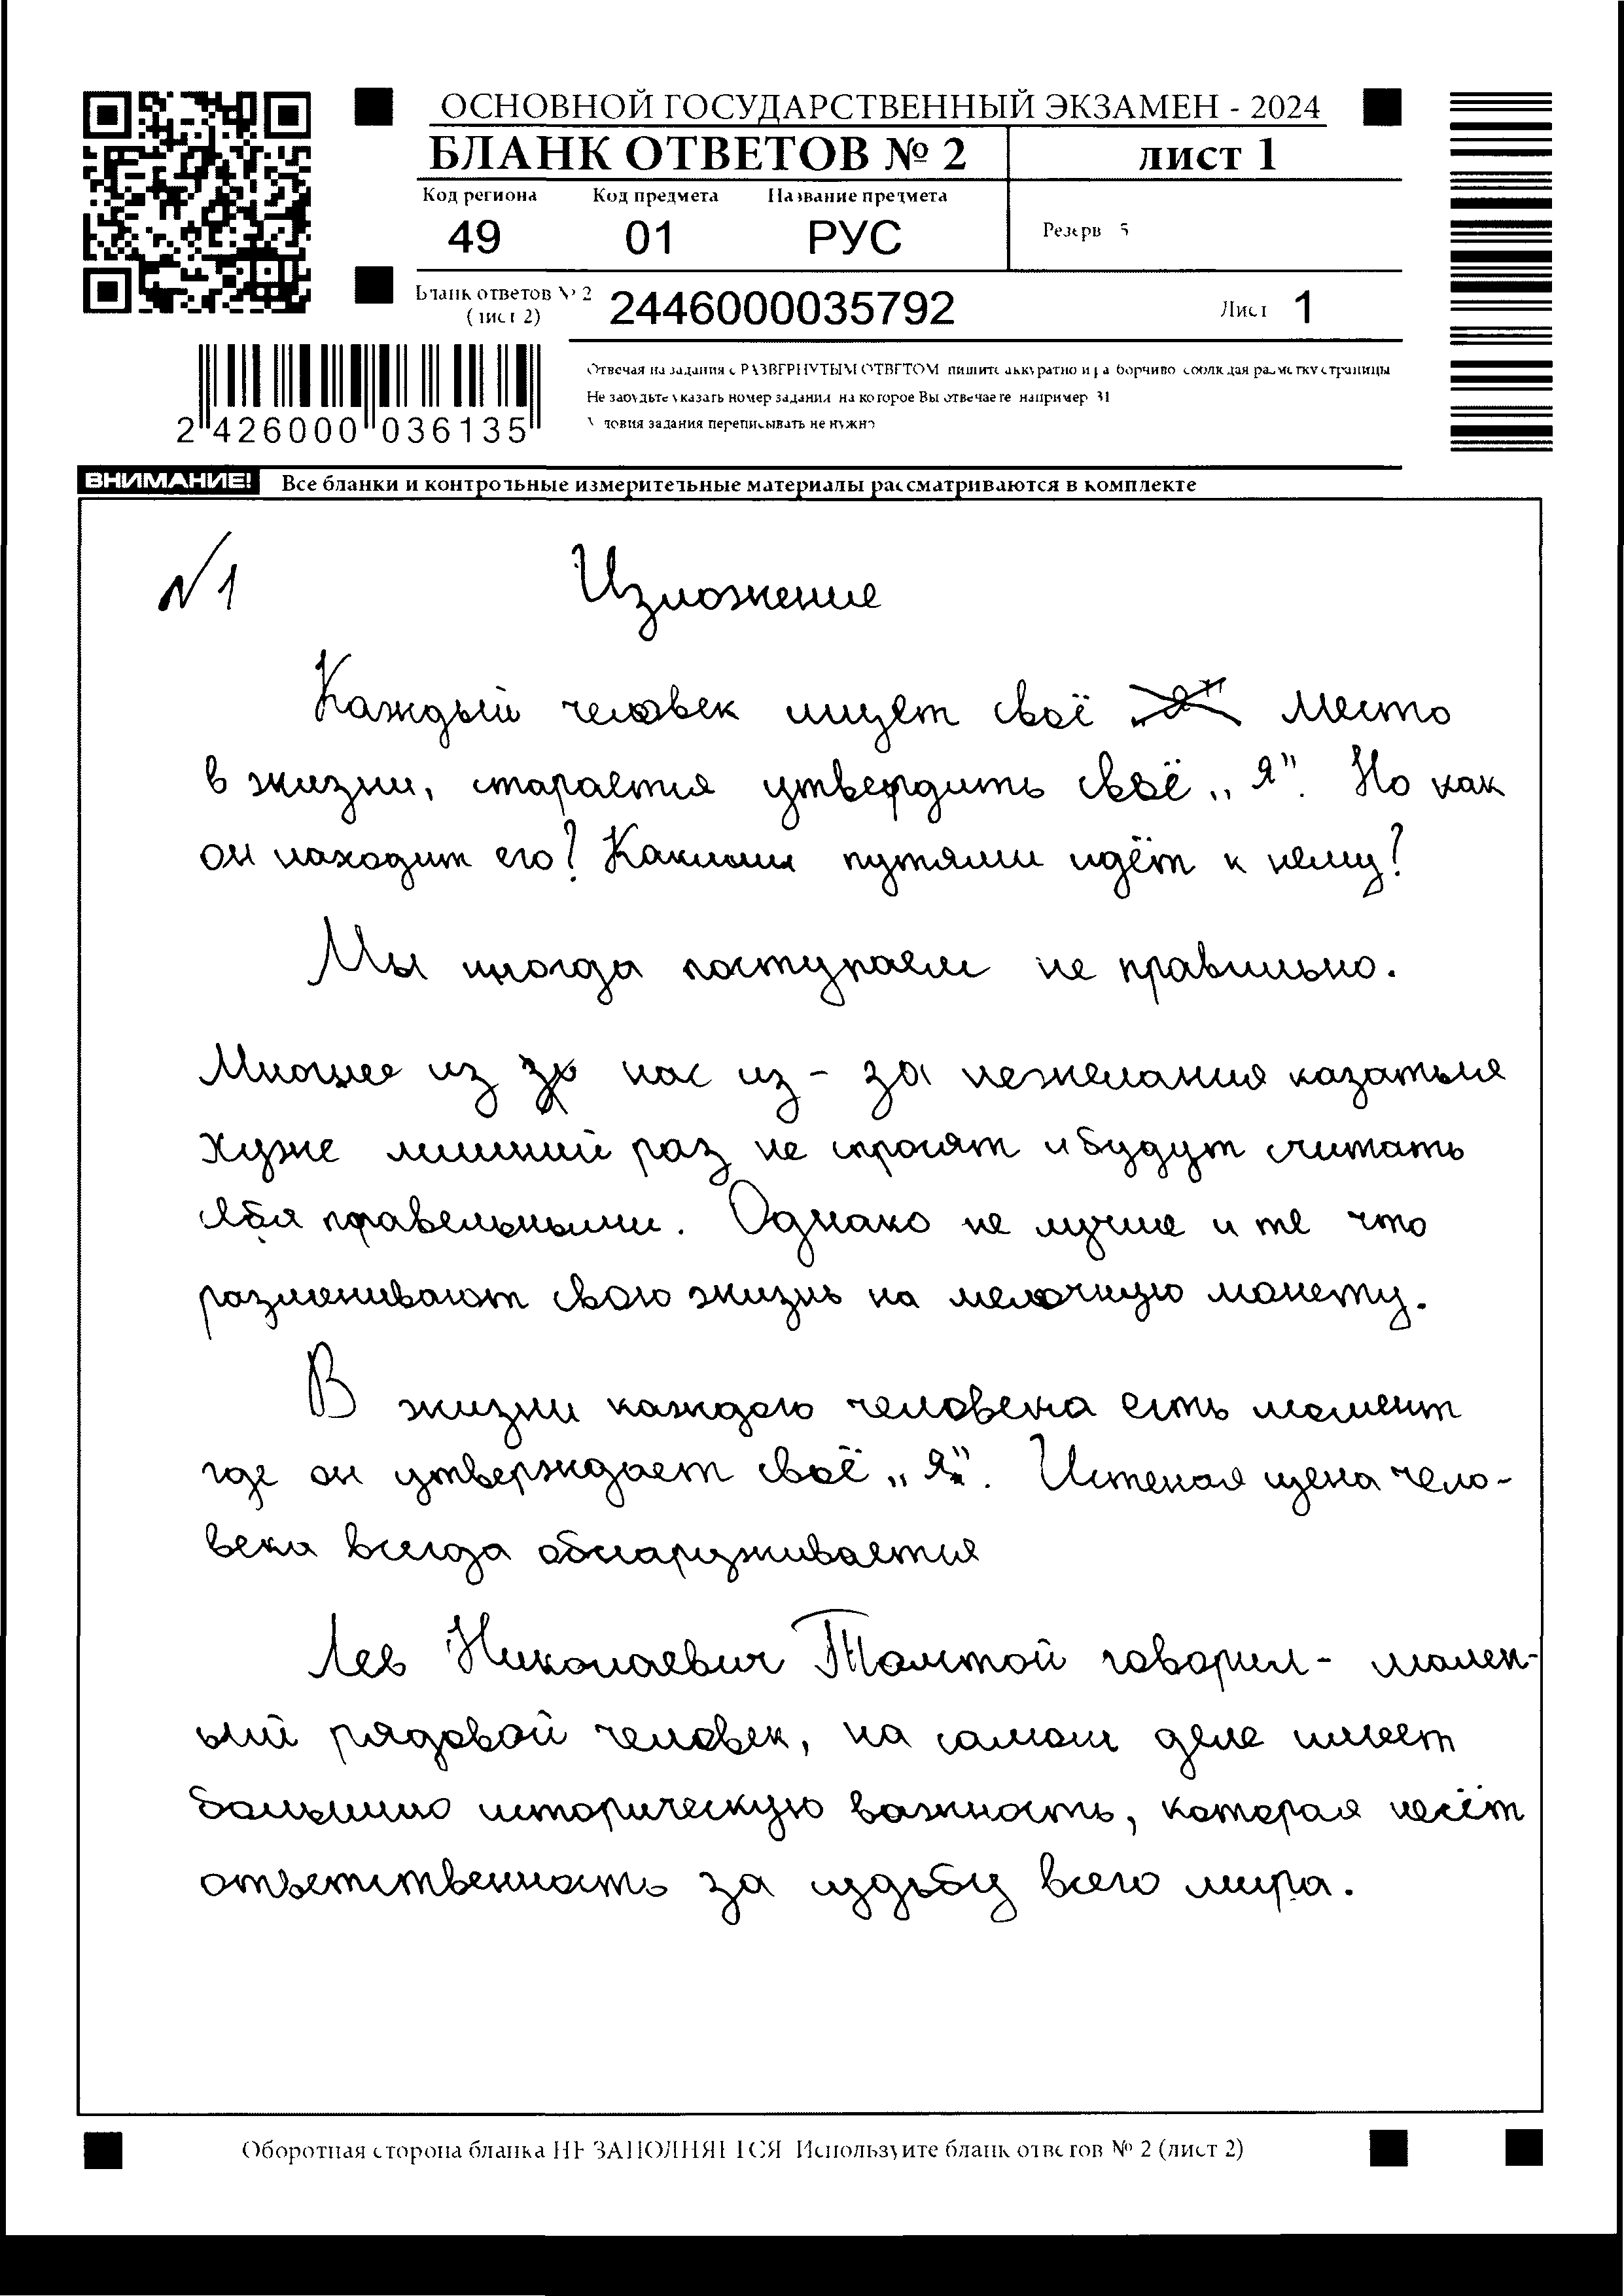 ОСНОВНОЙ ГОСУДАРСТВЕННЫЙ ЭКЗАМЕН - 2024
БЛАНК ОТВЕТОВ № 2 лист 1
Код региона Код предмета Название предмета
49 01 РУС Резерв 5
Бланк ответов № 2
(лист 2) 2446000035792 Лист 1
Отвечая на задания с РАЗВЕРНУТЫМ ОТВЕТОМ пишите аккуратно и разборчиво соблюдая разметку страницы
Не забудьте указать номер задания на которое Вы отвечаете например 31
Условия задания переписывать не нужно
2 426000 036135
ВНИМАНИЕ! Все бланки и контрольные измерительные материалы рассматриваются в комплекте
№1 Изложение
Каждый человек ищет своё место
в жизни, старается утвердить своё „я". Но как
он находит его? Какими путями идёт к нему?
Мы иногда поступаем не правильно.
Многие из нас из-за нежелания казаться
хуже лишний раз не спросят и будут считать
себя правельными. Однако не лучше и те что
разменивают свою жизнь на мелочную монету.
В жизни каждого человека есть момент
где он утверждает своё „я". Истеная цена чело-
века всегда обнаруживается
Лев Николаевич Толстой говорил - мален-
ьий рядовой человек, на самом деле имеет
большую историческую важность, которая несёт
ответственность за судьбу всего мира.
Оборотная сторона бланка НЕ ЗАПОЛНЯЕТСЯ Используйте бланк ответов № 2 (лист 2)